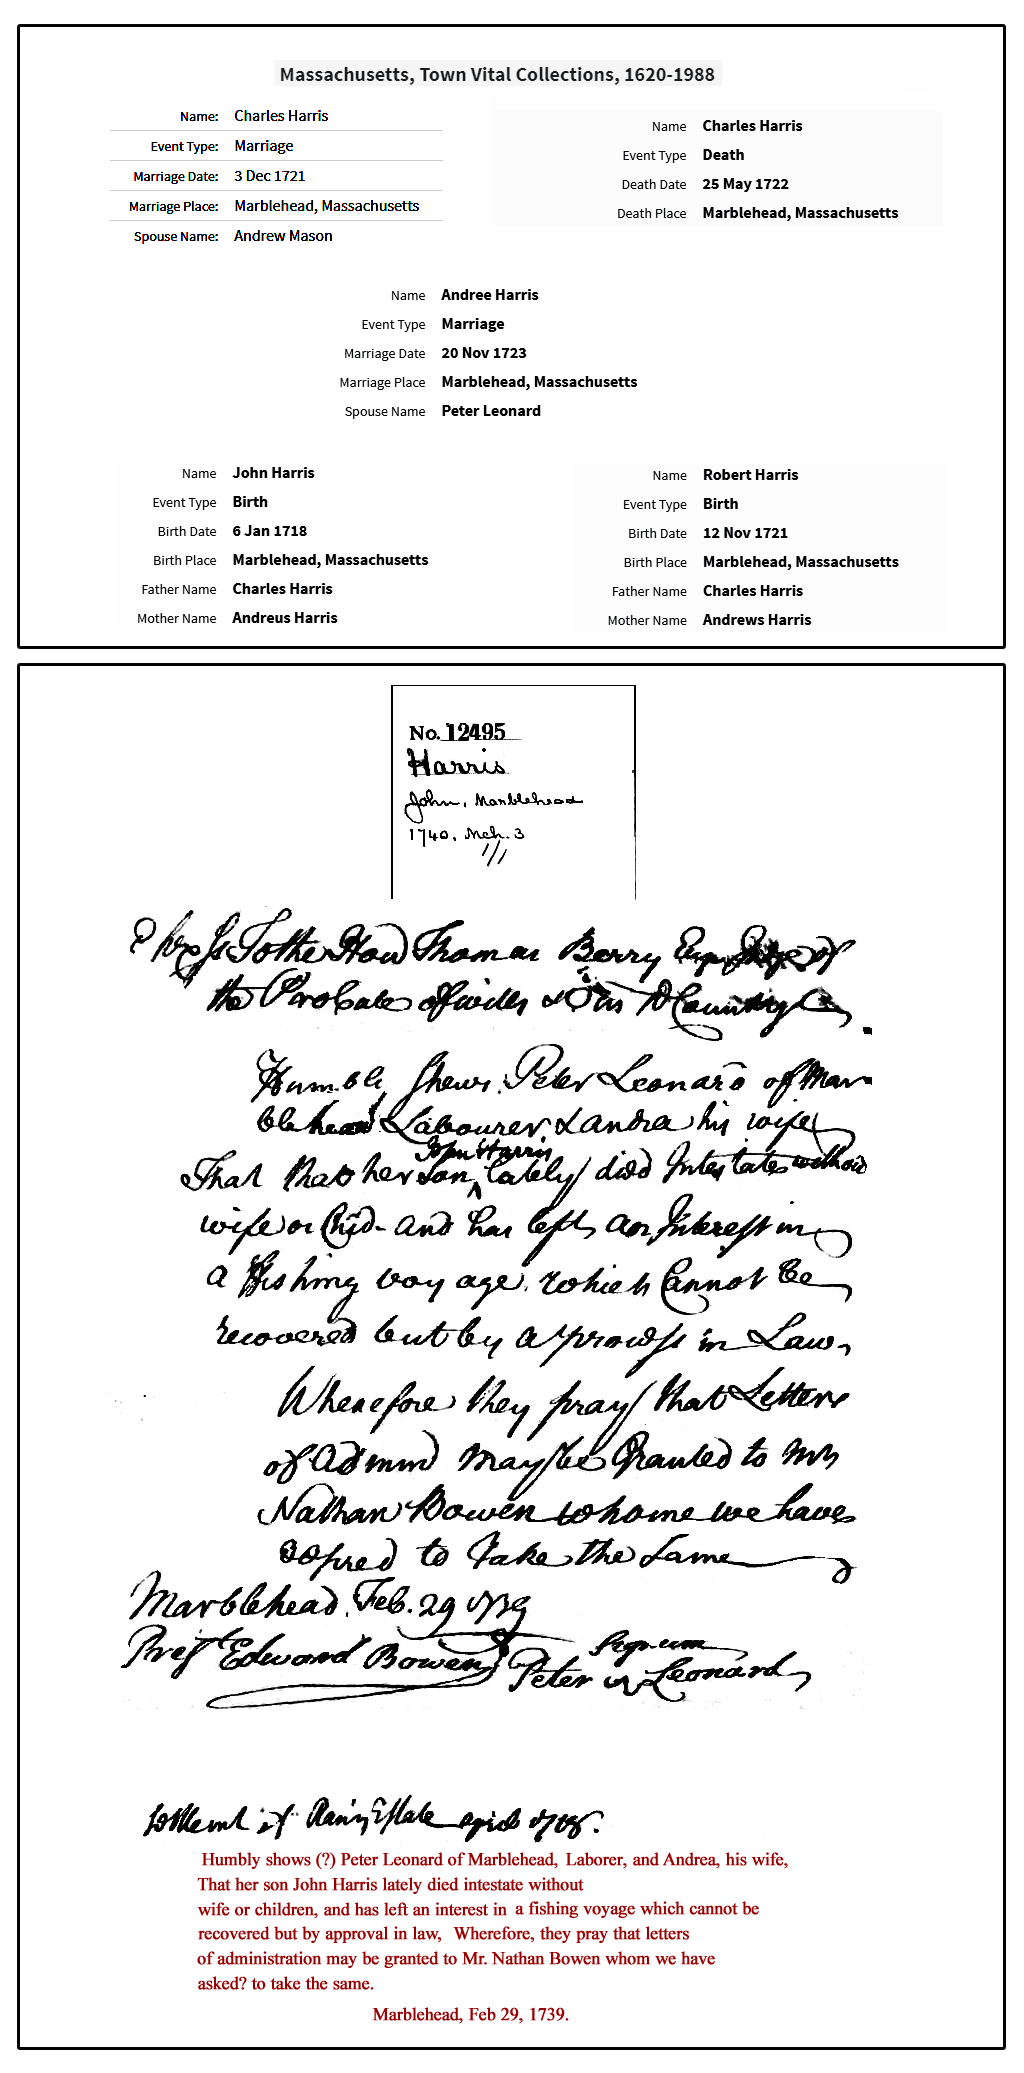 Massachusetts, Town Vital Collections, 1620-1988
Name: Charles Harris
Event Type: Marriage
Marriage Date: 3 Dec 1721
Marriage Place: Marblehead, Massachusetts
Spouse Name: Andrew Mason
Name Charles Harris
Event Type Death
Death Date 25 May 1722
Death Place Marblehead, Massachusetts
Name Andree Harris
Event Type Marriage
Marriage Date 20 Nov 1723
Marriage Place Marblehead, Massachusetts
Spouse Name Peter Leonard
Name John Harris
Event Type Birth
Birth Date 6 Jan 1718
Birth Place Marblehead, Massachusetts
Father Name Charles Harris
Mother Name Andreus Harris
Name Robert Harris
Event Type Birth
Birth Date 12 Nov 1721
Birth Place Marblehead, Massachusetts
Father Name Charles Harris
Mother Name Andrews Harris
No. 12495
Harris
John, Marblehead
1740, Mch. 3
To the Hon Thomas Berry Esqr Judge of
the Probate of wills &c in County
Humbly Shews Peter Leonard of Mar
blehead Labourer & Andra his wife
John Harris
That that her Son lately died Intestate without
wife or Child and has left an Interest in
a fishing voyage which Cannot be
recovered but by a process in Law
Wherefore they pray that Letters
of Admind may be Granted to Mr
Nathan Bowen whome we have
to Take the Same
Marblehead, Feb. 29 1739
Edward Bowen
Signum
Peter Leonard
Estate
Humbly shows (?) Peter Leonard of Marblehead, Laborer, and Andrea, his wife,
That her son John Harris lately died intestate without
wife or children, and has left an interest in a fishing voyage which cannot be
recovered but by approval in law, Wherefore, they pray that letters
of administration may be granted to Mr. Nathan Bowen whom we have
asked? to take the same.
Marblehead, Feb 29, 1739.